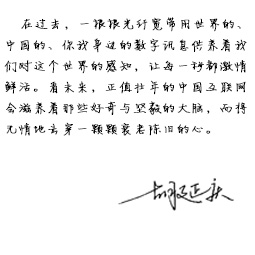 在过去，一根根光纤宽带用世界的、
中国的、你我身边的数字讯息供养着我
们对这个世界的感知，让每一秒都激情
鲜活。看未来，正值壮年的中国互联网
会滋养着那些好奇与坚毅的大脑，而将
无情地击穿一颗颗衰老陈旧的心。
胡延庆